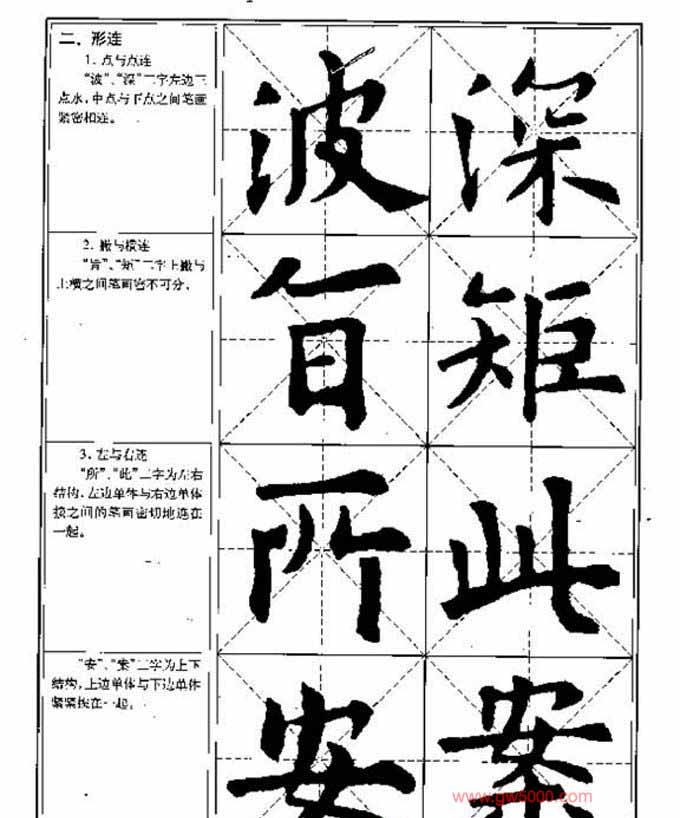 二、形连
1. 点与点连
“波”、“深”二字左边三
点水，中点与下点之间笔画
紧密相连。
波 深
2. 撇与横连
“旨”、“矩”二字上撇与
上横之间笔画密不可分。
旨 矩
3. 左与右连
“所”、“此”二字为左右
结构，左边单体与右边单体
接之间的笔画密切地连在
一起。
所 此
“安”、“案”二字为上下
结构，上边单体与下边单体
紧紧接在一起。
安 案
www.gw5000.com